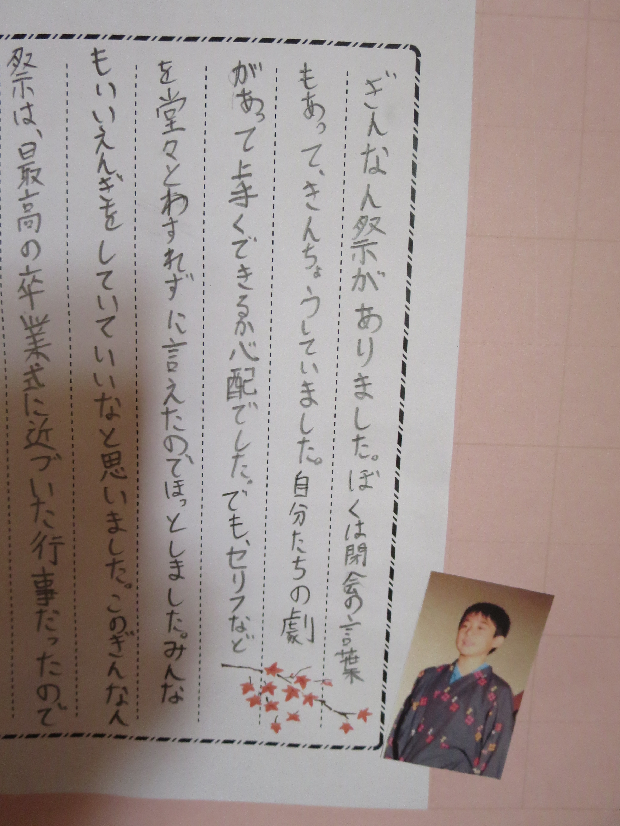 ぎんなん祭がありました。ぼくは閉会の言葉
もあって、きんちょうしていました。自分たちの劇
があって上手くできるか心配でした。でも、セリフなど
を堂々とわすれずに言えたのでほっとしました。みんな
もいいえんぎをしていていいなと思いました。このぎんなん
祭は、最高の卒業式に近づいた行事だったので